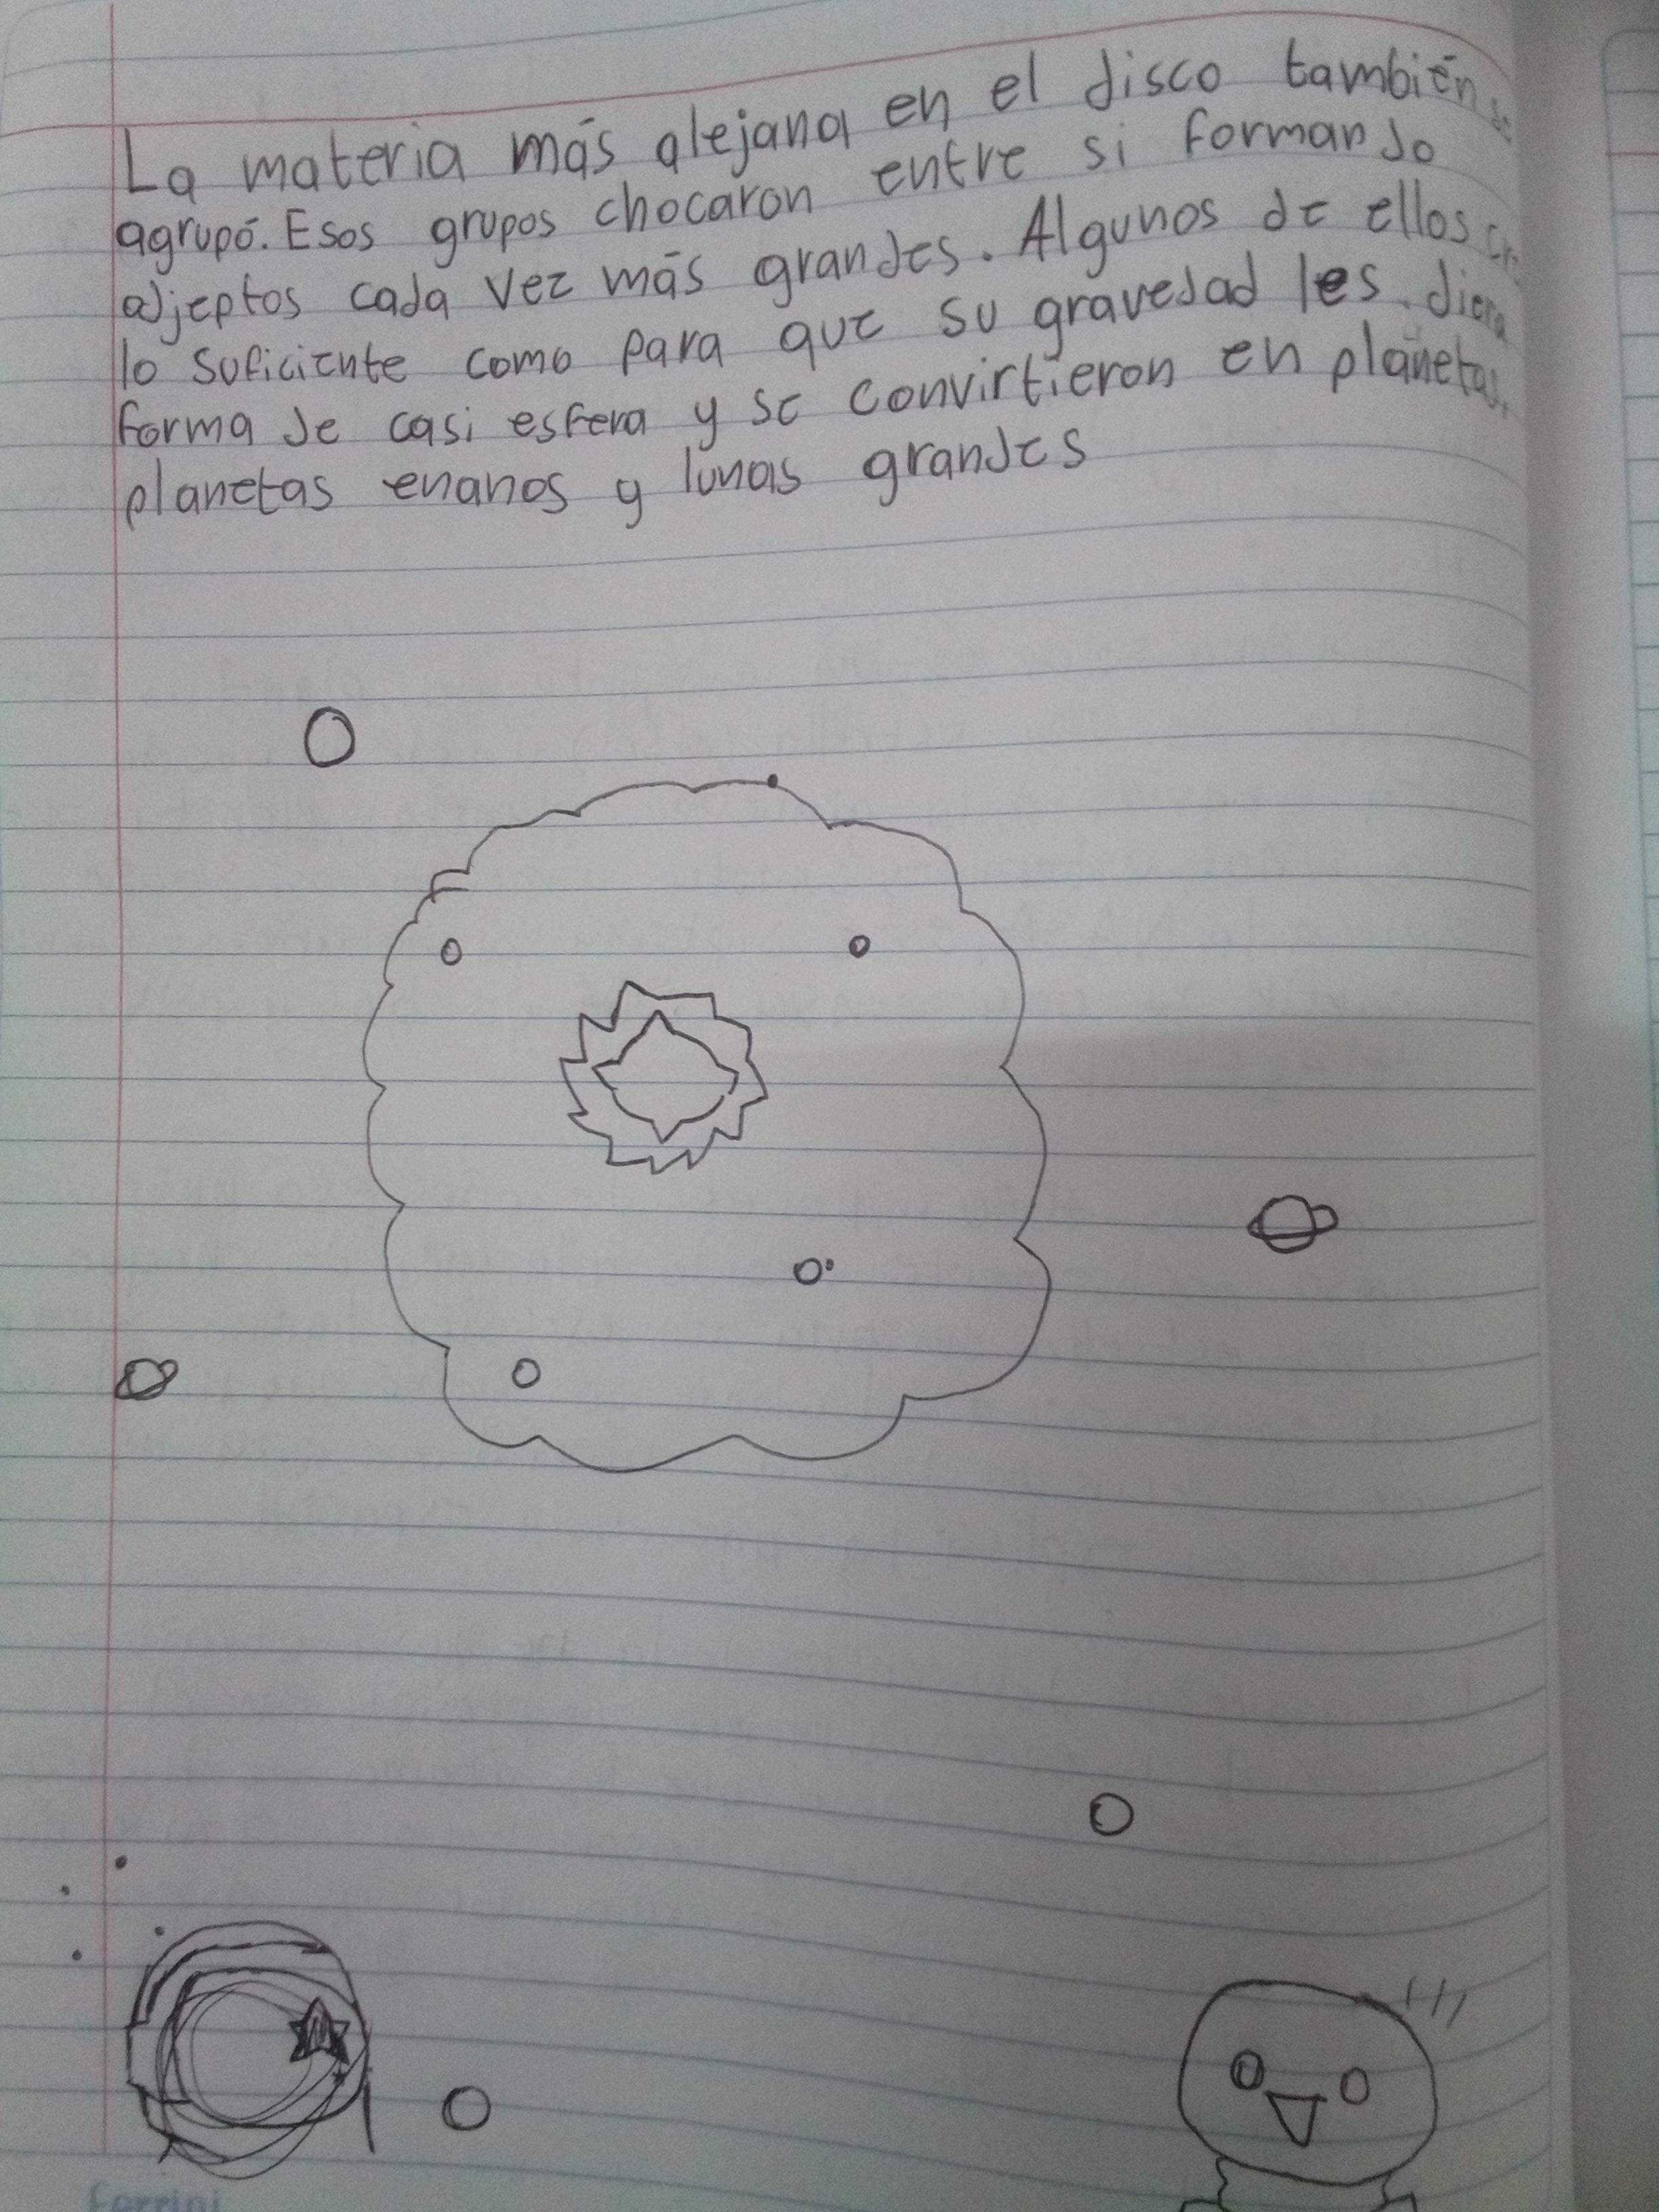 La materia más alejana en el disco también se
agrupó. Esos grupos chocaron entre si formando
objeptos cada vez más grandes. Algunos de ellos
lo suficiente como para que su gravedad les diera
forma de casi esfera y se convirtieron en planetas,
planetas enanos y lunas grandes
Ferrini